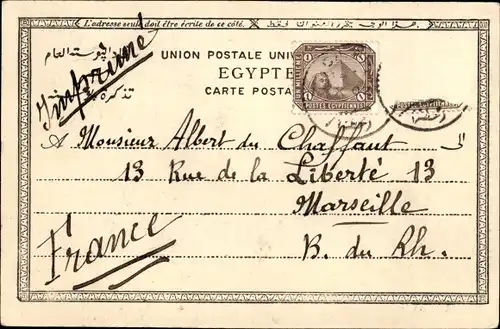 L'adresse seule doit être écrite de ce côté.
Imprimé
UNION POSTALE UNI
EGYPTE
CARTE POSTA
تذكرة
1 1
UN MILLIEME
POSTES EGYPTIENNES
A Monsieur Albert du Chaffaut
13 Rue de la Liberté 13
Marseille
France
B. du Rh.